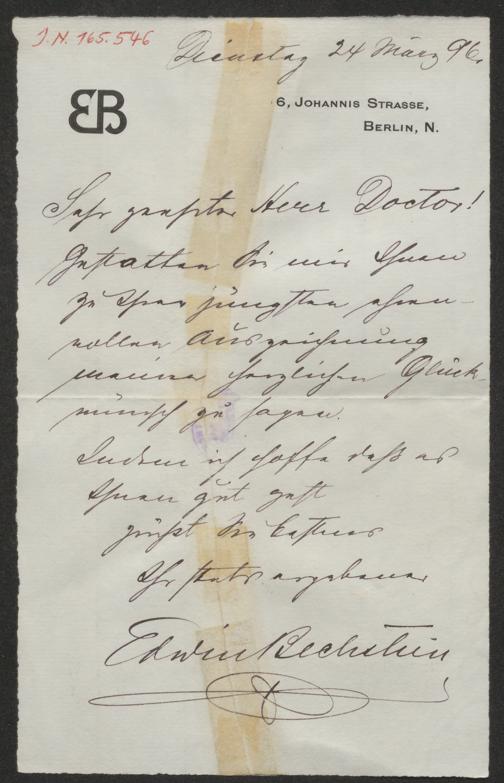 I. N. 165.546
Dienstag 24 März 96.
EB
6, JOHANNIS STRASSE,
BERLIN, N.
Sehr geehrter Herr Doctor!
Gestatten Sie mir Ihnen
zu Ihrer jüngsten ehren-
vollen Auszeichnung
meinen herzlichen Glück-
wunsch zu sagen.
Indem ich hoffe daß es
Ihnen gut geht
grüßt Sie bestens
Ihr stets ergebener
Edwin Bechstein